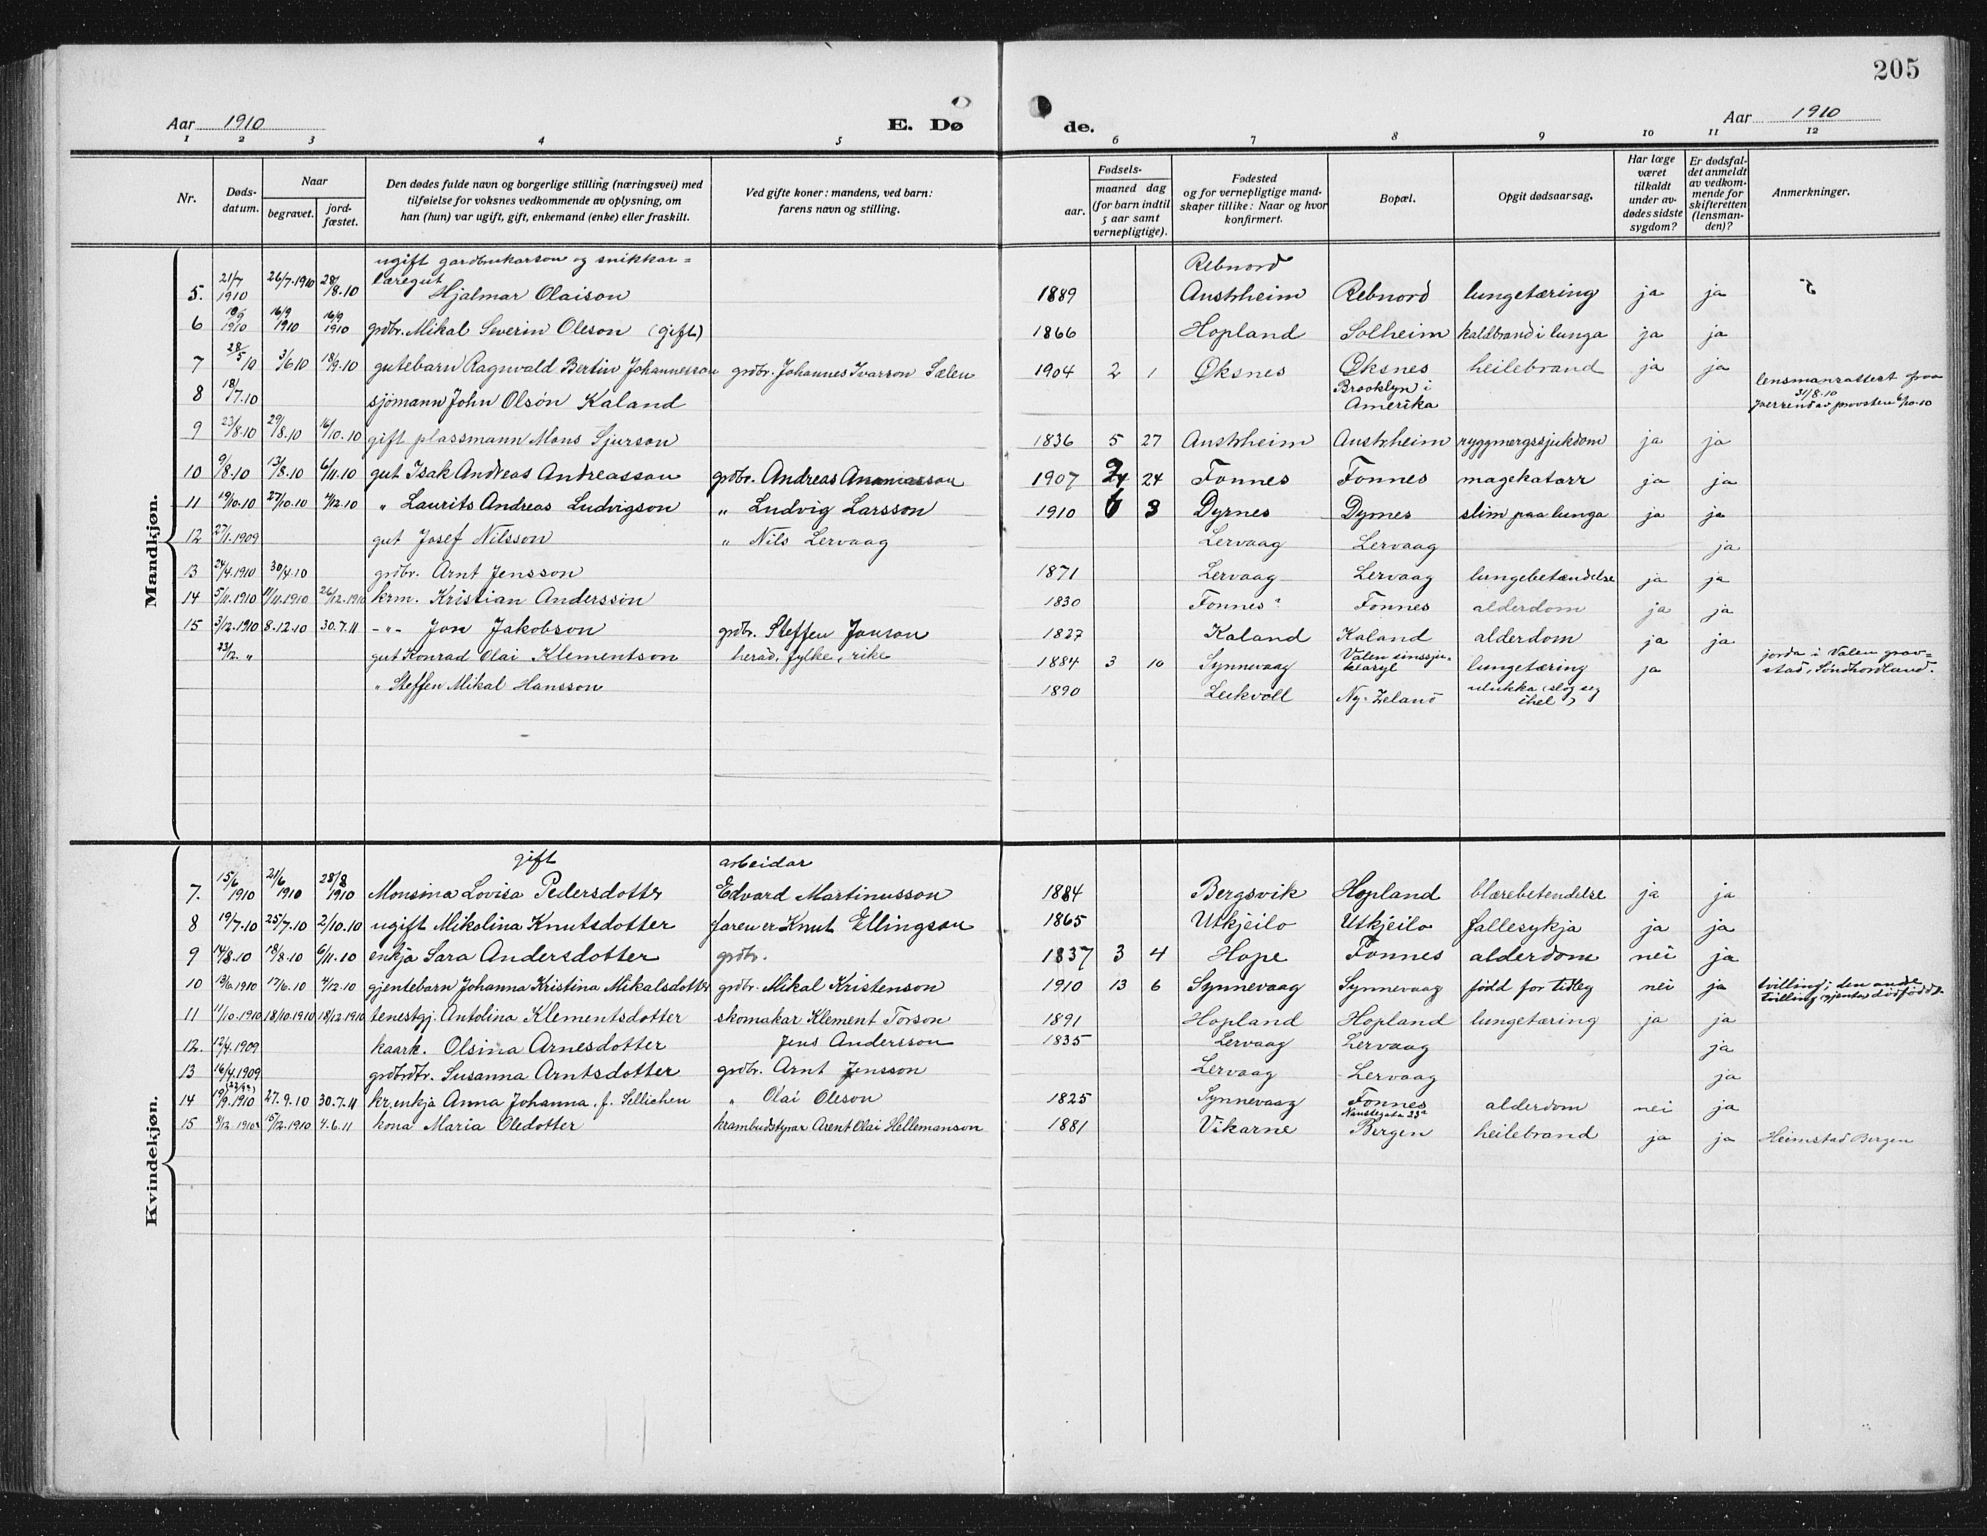 205
Aar 1910
E. Dø
de.
Aar 1910
1 2 3 4 5 6 7 8 9 10 11 12
Nr.
Døds-
datum.
Naar
begravet.
jord-
fæstet.
Den dødes fulde navn og borgerlige stilling (næringsvei) med
tilføielse for voksnes vedkommende av oplysning, om
han (hun) var ugift, gift, enkemand (enke) eller fraskilt.
Ved gifte koner: mandens, ved barn:
farens navn og stilling.
Fødsels-
aar.
maaned dag
(for barn indtil
5 aar samt
vernepligtige).
Fødested
og for vernepligtige mand-
skaper tillike: Naar og hvor
konfirmert.
Bopæl.
Opgit dødsaarsag.
Har læge
været
tilkaldt
under av-
dødes sidste
sygdom?
Er dødsfal-
det anmeldt
av vedkom-
mende for
skifteretten
(lensman-
den)?
Anmerkninger.
Mandkjøn.
ugift gardbrukarson og snikkar-
læregut
Rebnord
5. 21/7 1910 26/7.1910 28/8.10 Hjalmar Olaison 1889 Austrheim Rebnord lungetæring ja ja
6 1910 16/9 1910 16/9 1910 grdbr. Mikal Severin Oleson (gift) 1866 Hopland Solheim kaldbrand i lunga ja ja
7 28/5 10 3/6 10 18/9.10 gutebarn Ragnvald Bertin Johannesson grdbr. Johannes Ivarson Sælen 1904 2 1 Øksnes Øksnes heilebrand ja ja
8 18/7.10 sjømann John Olson Kaland Brooklyn i
Amerika
lensmansattest
31/8.10
9 23/8.10 29/8.10 16/10.10 gift plassmann Mons Sjurson 1836 5 27 Austrheim Austrheim ryggmergssjukdom ja ja
10 9/8.10 13/8.10 6/11.10 gut Isak Andreas Andreasson grdbr. Andreas Ananiasson 1907 24 Fonnes Fonnes magekatarr ja ja
11 19/10.10 27/10.10 4/12.10 " Laurits Andreas Ludvigson " Ludvig Larsson 1910 6 3 Dyrnes Dyrnes slim paa lunga ja ja
12 27/1.1909 gut Josef Nilsson " Nils Lervaag Lervaag Lervaag ja
13 24/4.1910 30/4.10 grdbr. Arnt Jensson 1871 Lervaag Lervaag lungebetændelse ja ja
14 5/11.1910 11/11.1910 26/12.1910 krm. Kristian Andersson 1830 Fonnes Fonnes alderdom ja ja
15 3/12.1910 8.12.10 30.7.11 -"- Jon Jakobson grdbr. Steffen Jonson 1827 Kaland Kaland alderdom ja ja
23/12. " gut Konrad Olai Klementson herad, fylke, rike 1884 3 10 Synnevaag Valen sinssju-
keasyl lungetæring ja
jorda i Valen grav-
stad, Søndhordland.
" Steffen Mikal Hansson 1890 Leikvoll Ny-Zeland ulukka (slog seg
ihel)
Kvindekjøn.
gift arbeidar
7. 15/6 1910 21/6 1910 28/8 1910 Monsina Lovisa Pedersdotter Edvard Martinusson 1884 Bergsvik Hopland blærebetendelse ja ja
8 19/7.10 25/7.10 2/10.10 ugift Mikolina Knutsdotter faren er Knut Ellingson 1865 Utkjeilo Utkjeilo fallesykja ja ja
9 14/8.10 18/8.10 6/11.10 enkja Sara Andersdotter grdbr. 1837 3 4 Hope Fonnes alderdom nei ja
10 13/6.1910 17/6.10 4/12.10 gjentebarn Johanna Kristina Mikalsdotter grdbr. Mikal Kristenson 1910 13 6 Synnevaag Synnevaag född for tidleg nei ja
tvilling; den andre
tvilling, gjenta, dødfødd.
11 11/10.1910 18/10.1910 18/12.1910 tenestgj. Antolina Klementsdotter skomakar Klement Torson 1891 Hopland Hopland lungetæring ja ja
12. 12/4.1909 kaark. Olsina Arnesdotter Jens Andersson 1835 Lervaag Lervaag ja
13 16/4.1909 grdbrdtr. Susanna Arntsdotter grdbr. Arnt Jensson Lervaag Lervaag ja
14 19/9.1910 27.9.10 30.7.11 kr.enkja Anna Johanna f. Sellichen " Olai Oleson 1825 Synnevaag Fonnes alderdom nei ja
15 9/12.1910 15/12.1910 4.6.11 kona Maria Oledotter krambudstyrar Arent Olai Hellemanson 1881 Vikarne Nøstegata 23a
Bergen heilebrand ja ja Heimstad Bergen